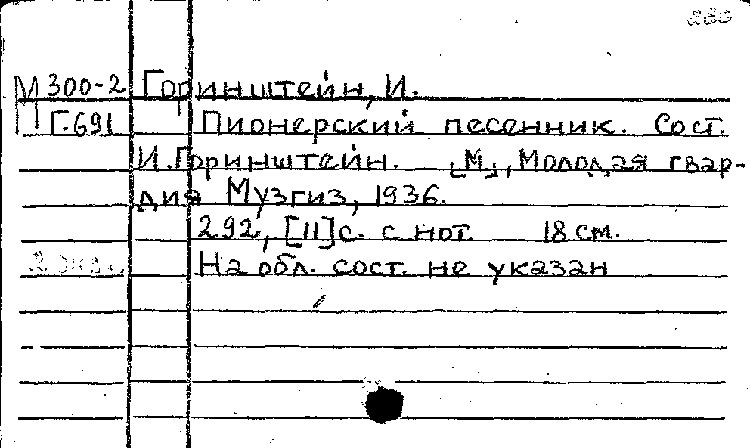 М 300-2 Горинштейн, И.
Г.691 Пионерский песенник. Сост.
И.Горинштейн. [М], Молодая гвар-
дия Музгиз, 1936.
292, [11] с. с нот. 18 см.
На обл. сост. не указан